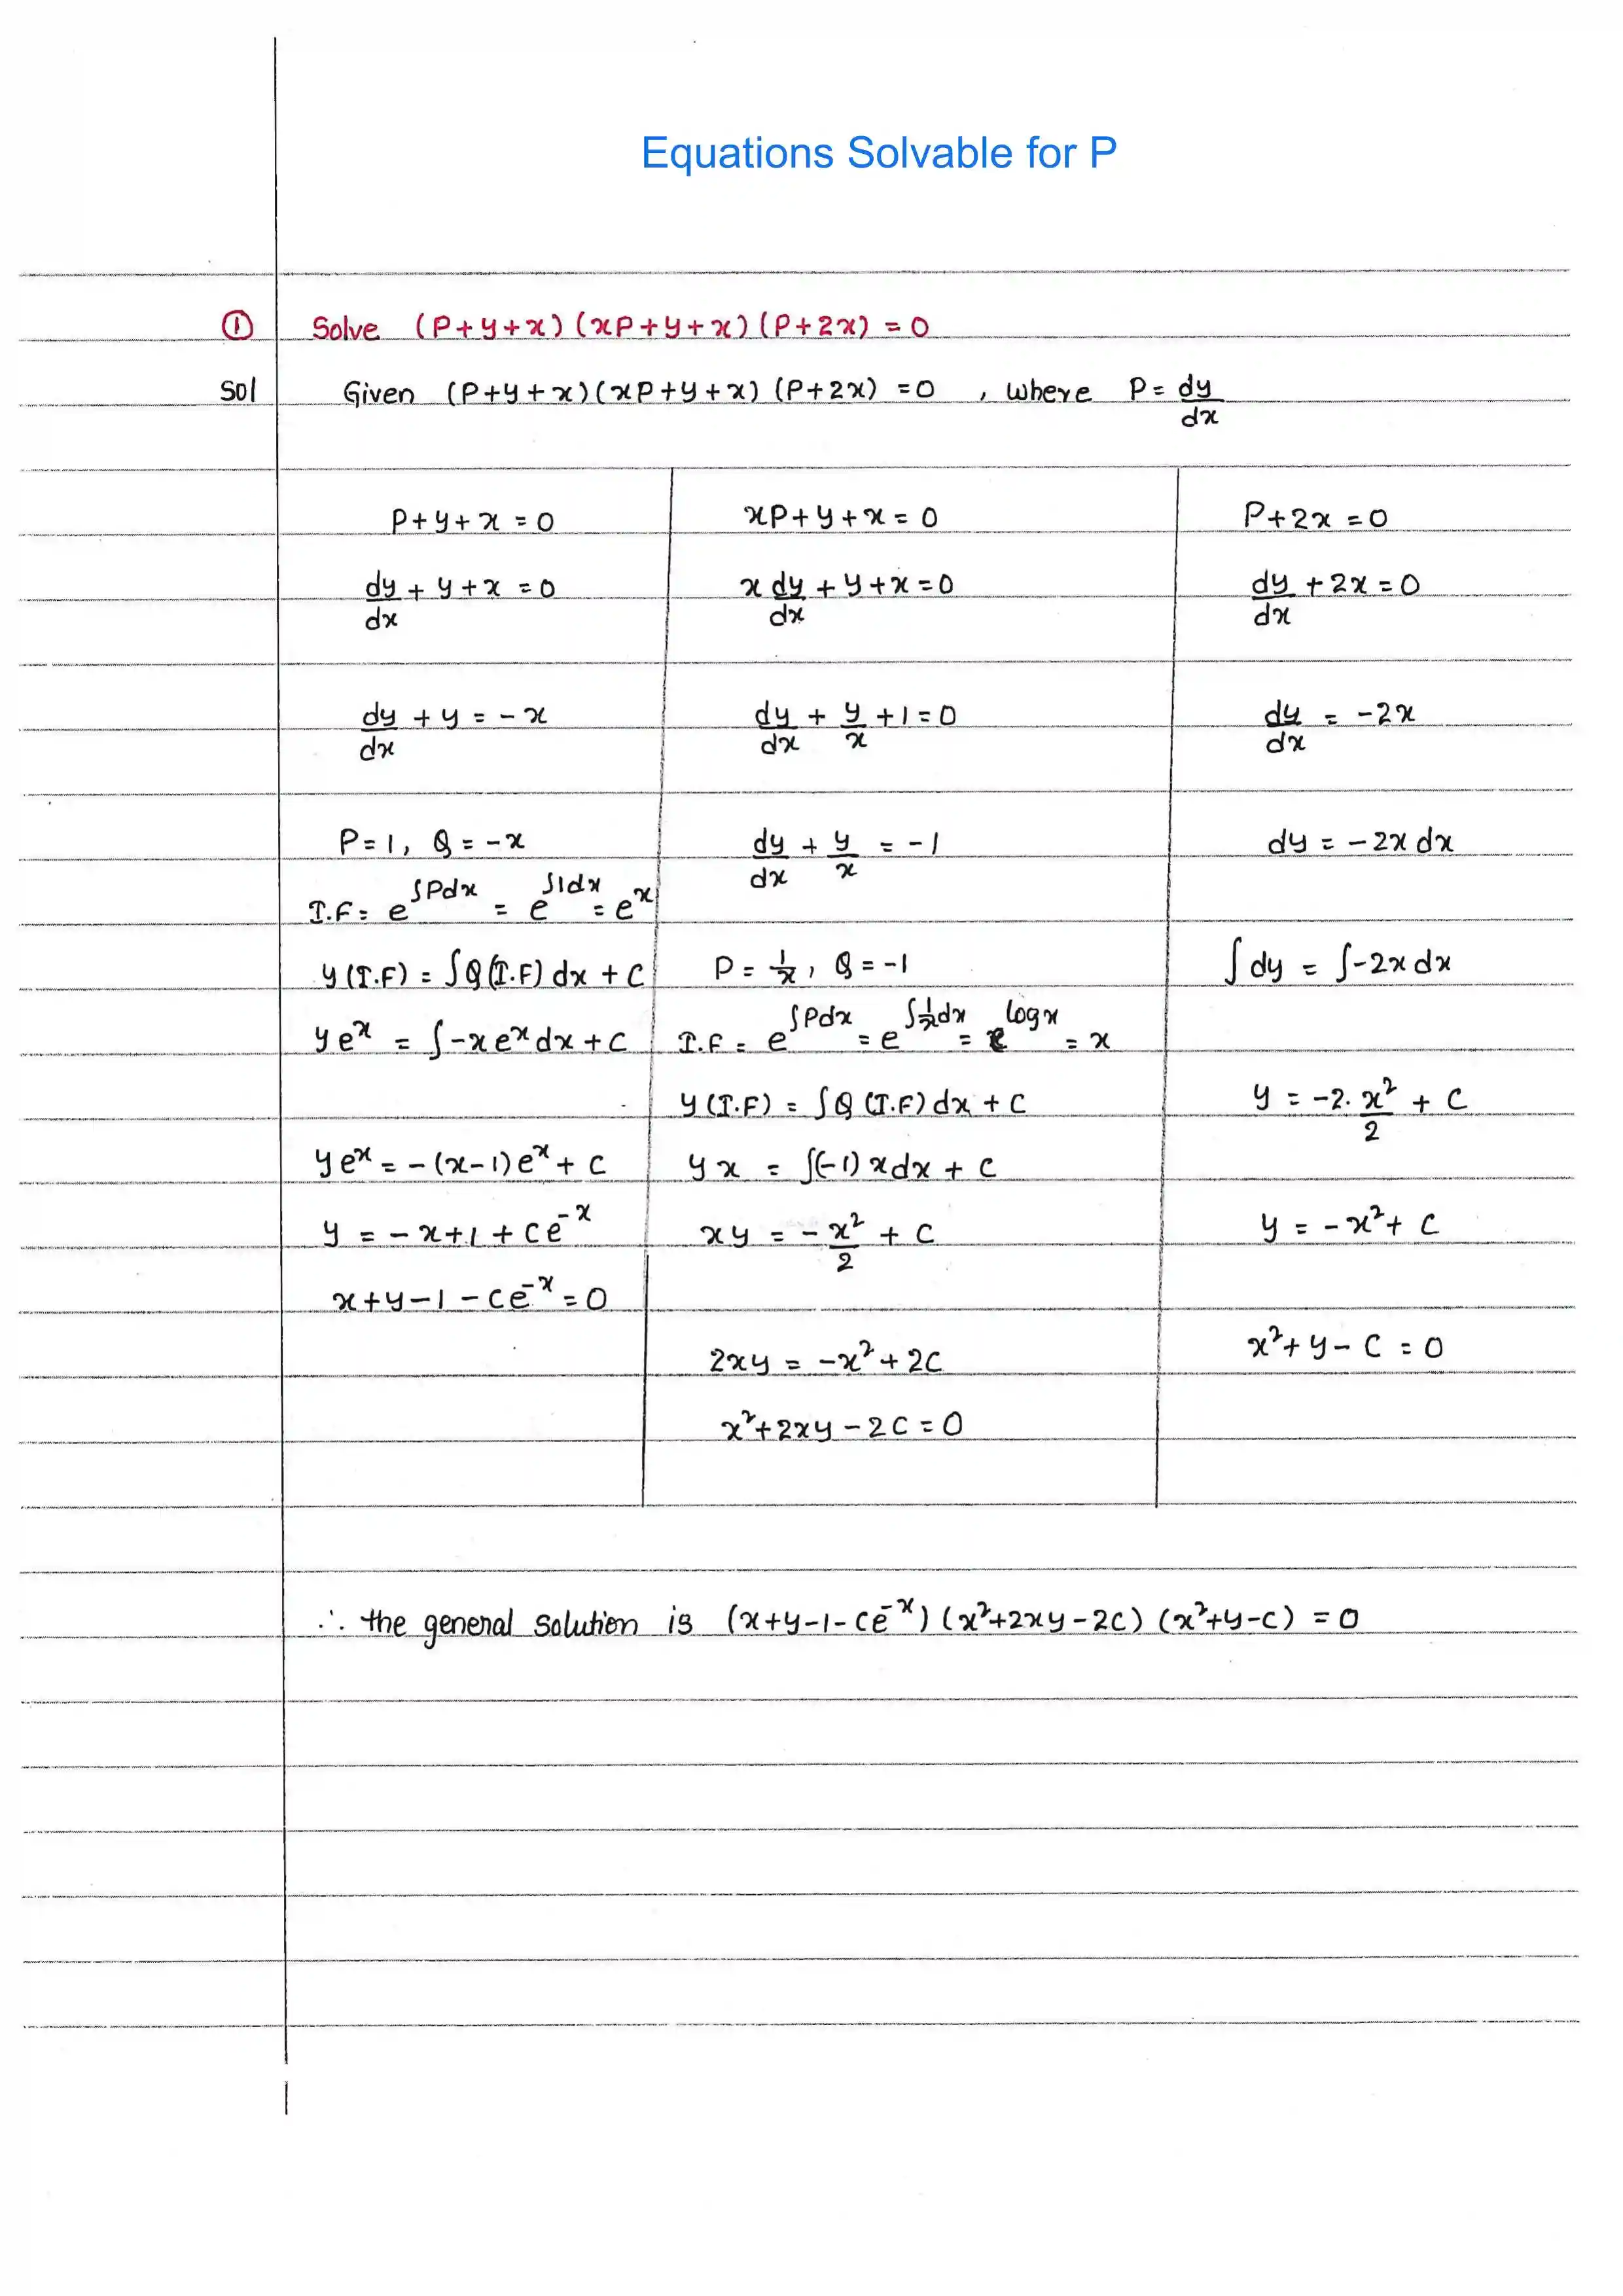 Equations Solvable for P
① Solve (P+y+x)(xP+y+x)(P+2x) = 0
Sol Given (P+y+x)(xP+y+x)(P+2x) = 0 , where P = dy/dx
P+y+x = 0
dy/dx + y + x = 0
dy/dx + y = -x
P = 1, Q = -x
I.F = e^∫Pdx = e^∫1dx = e^x
y(I.F) = ∫Q(I.F) dx + C
ye^x = ∫-xe^x dx + C
ye^x = -(x-1)e^x + C
y = -x+1 + Ce^-x
x+y-1-Ce^-x = 0
xP+y+x = 0
x dy/dx + y + x = 0
dy/dx + y/x + 1 = 0
dy/dx + y/x = -1
P = 1/x, Q = -1
I.F = e^∫Pdx = e^∫1/x dx = e^log x = x
y(I.F) = ∫Q(I.F) dx + C
yx = ∫(-1) x dx + C
xy = -x²/2 + C
2xy = -x² + 2C
x²+2xy-2C = 0
P+2x = 0
dy/dx + 2x = 0
dy/dx = -2x
dy = -2x dx
∫dy = ∫-2x dx
y = -2. x²/2 + C
y = -x² + C
x²+y-C = 0
∴ the general solution is (x+y-1-Ce^-x)(x²+2xy-2C)(x²+y-C) = 0